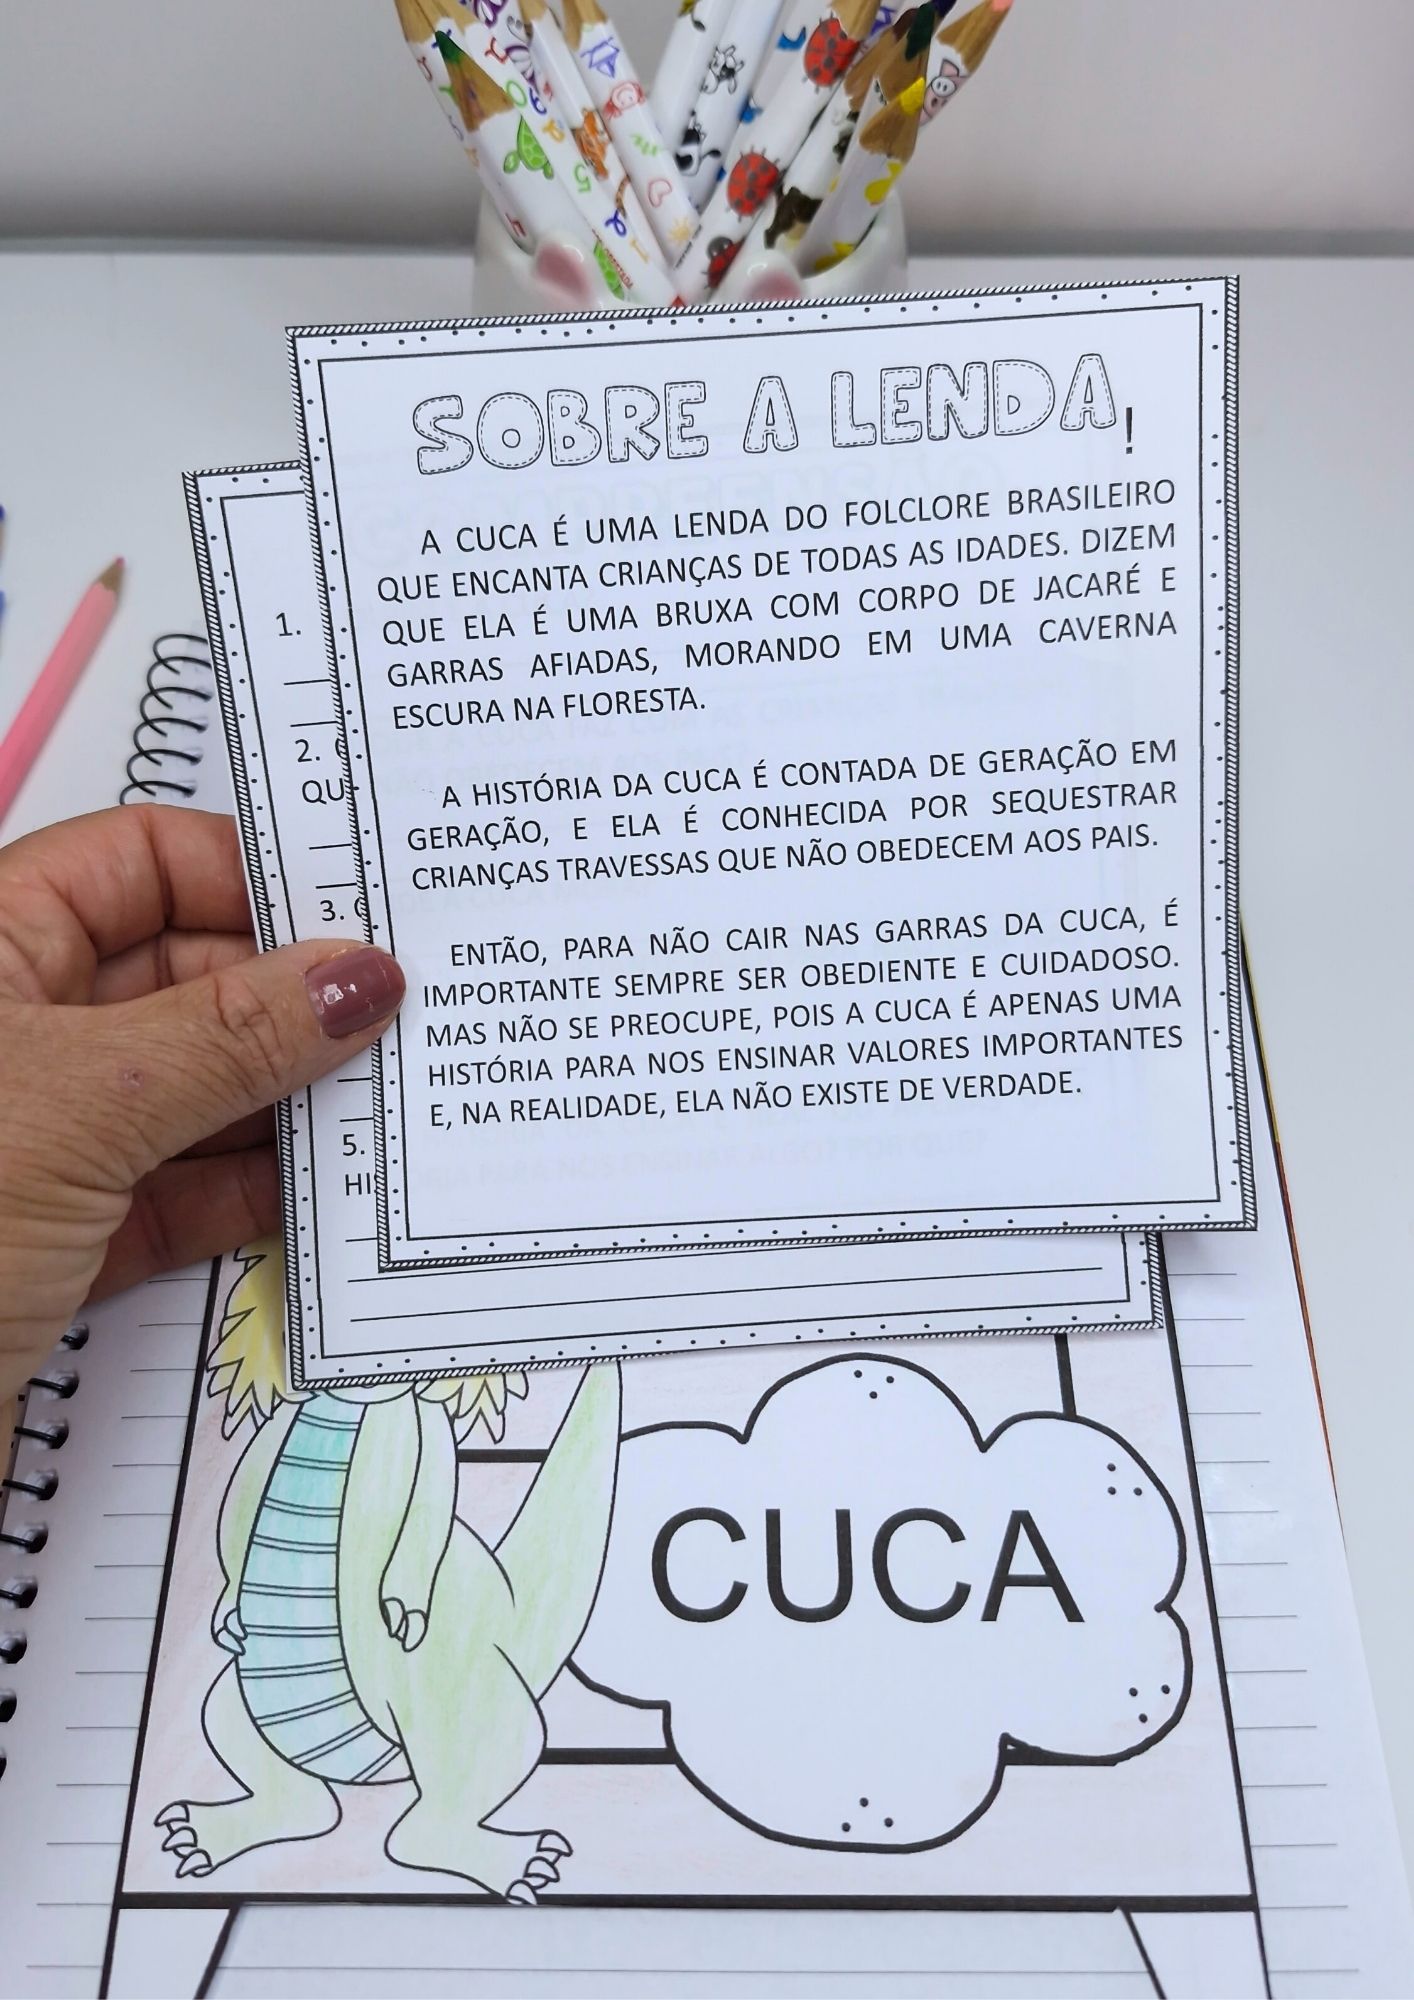 SOBRE A LENDA!
A CUCA É UMA LENDA DO FOLCLORE BRASILEIRO
QUE ENCANTA CRIANÇAS DE TODAS AS IDADES. DIZEM
QUE ELA É UMA BRUXA COM CORPO DE JACARÉ E
GARRAS AFIADAS, MORANDO EM UMA CAVERNA
ESCURA NA FLORESTA.
A HISTÓRIA DA CUCA É CONTADA DE GERAÇÃO EM
GERAÇÃO, E ELA É CONHECIDA POR SEQUESTRAR
CRIANÇAS TRAVESSAS QUE NÃO OBEDECEM AOS PAIS.
ENTÃO, PARA NÃO CAIR NAS GARRAS DA CUCA, É
IMPORTANTE SEMPRE SER OBEDIENTE E CUIDADOSO.
MAS NÃO SE PREOCUPE, POIS A CUCA É APENAS UMA
HISTÓRIA PARA NOS ENSINAR VALORES IMPORTANTES
E, NA REALIDADE, ELA NÃO EXISTE DE VERDADE.
1.
2.
QU
3.
5.
HIS
CUCA